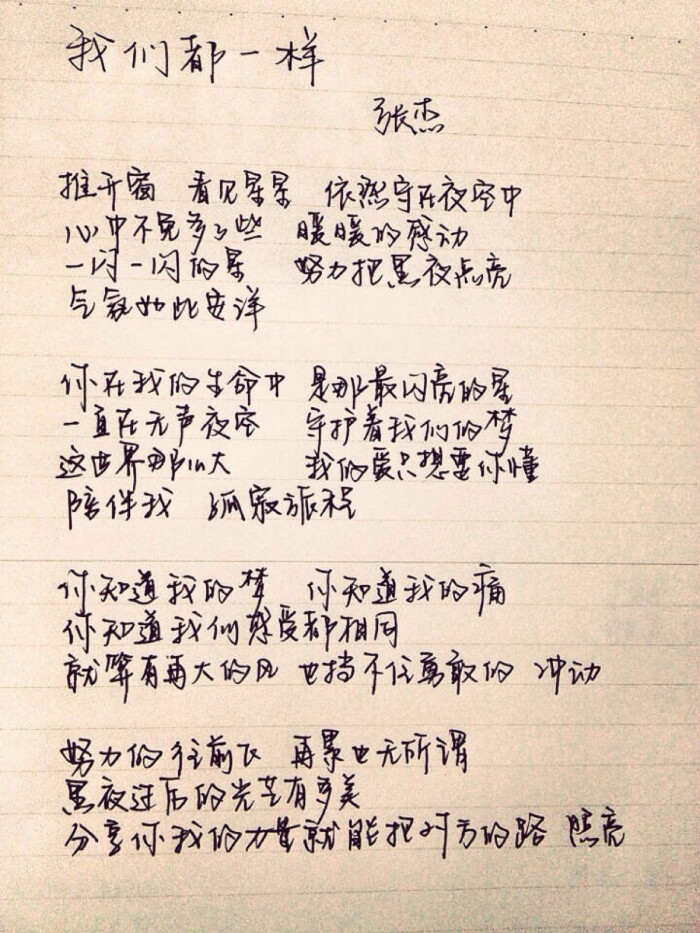 我们都一样
张杰
推开窗 看见星星 依然守在夜空中
心中不免多了些 暖暖的感动
一闪一闪的星 努力把黑夜点亮
气氛如此安详
你在我的生命中 是那最闪亮的星
一直在无声夜空 守护着我们的梦
这世界那么大 我的爱只想要你懂
陪伴我 孤寂旅程
你知道我的梦 你知道我的痛
你知道我们感受都相同
就算有再大的风 也挡不住勇敢的 冲动
努力的往前飞 再累也无所谓
黑夜过后的光芒有多美
分享你我的力量就能把对方的路 照亮